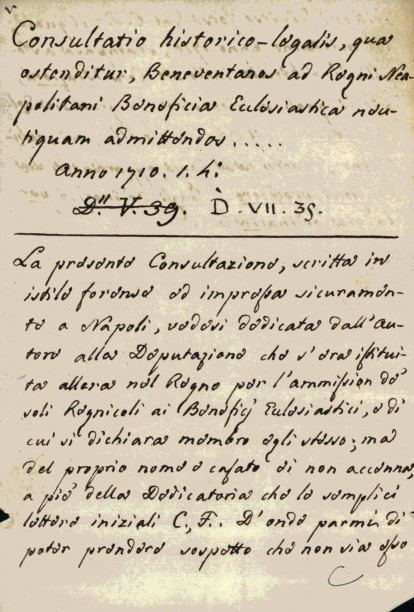 Consultatio historico-legalis, qua
ostenditur, Beneventanos ad Regni Nea-
politani Beneficia Eclesiastica neu-
tiquam admittendos.....
Anno 1710. i. 4:
D.ⁱⁱ V. 39. D. VII. 35.
La presente Consultazione, scritta in
istile forense ed impressa sicuramen-
te a Napoli, vedesi dedicata dall'Au-
tore alla Deputazione che s'era istitui-
ta allora nel Regno per l'ammission de'
soli Regnicoli ai Beneficj Eclesiastici, e di
cui si dichiara membro egli stesso; ma
del proprio nome e casato ei non accenna,
a piè della Dedicatoria che le semplici
lettere iniziali C. F. D'onde parmi di
poter prendere sospetto che non sia esso